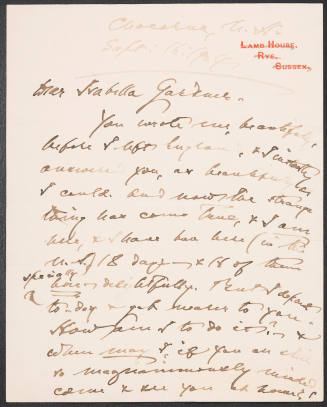 Chocorua, N.H.
Sept. 16.
LAMB HOUSE,
RYE,
SUSSEX.
Dear Isabella Gardner.
You wrote me beautifully
before I left England, & I instantly
answered you, as beautifully as
I could. And now the strange
thing has come true, & I am
here, & I have been here (in the
U.S.) 18 days & 18 of them
specially
delightfully. But I
to-day & get nearer to you.
How am I to do it? &
when may I, if you are still
so magnanimously minded
come & see you at home,